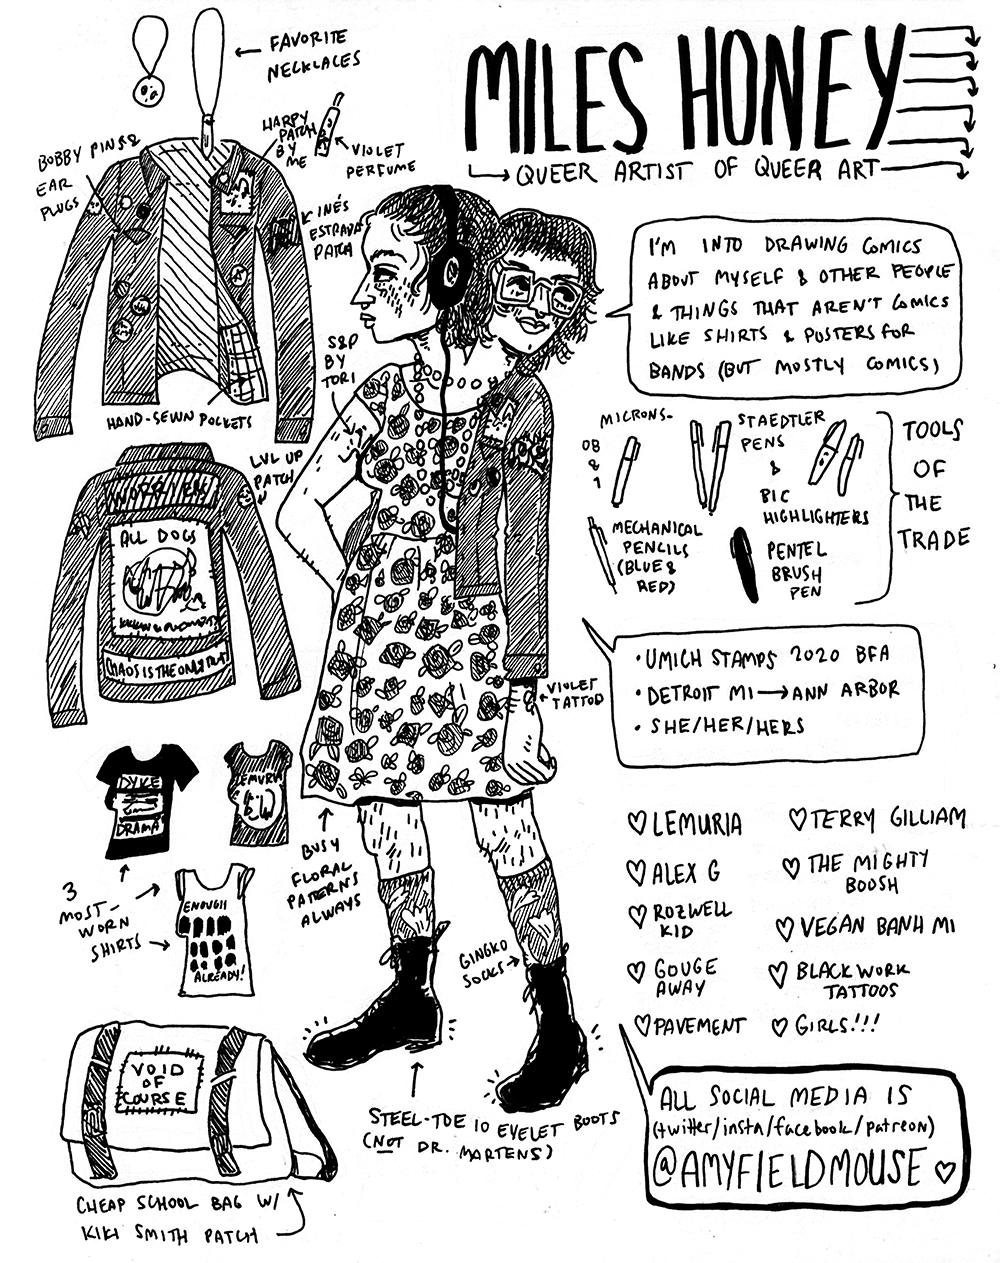 FAVORITE
NECKLACES
MILES HONEY
QUEER ARTIST OF QUEER ART
BOBBY PINS &
EAR
PLUGS
HARPY
PATCH
BY
ME
VIOLET
PERFUME
INÉS
ESTRADA
PATCH
HAND-SEWN POCKETS
S&P
BY
TORI
I'M INTO DRAWING COMICS
ABOUT MYSELF & OTHER PEOPLE
& THINGS THAT AREN'T COMICS
LIKE SHIRTS & POSTERS FOR
BANDS (BUT MOSTLY COMICS)
MICRONS-
08
&
1
STAEDTLER
PENS
&
BIC
HIGHLIGHTERS
MECHANICAL
PENCILS
(BLUE &
RED)
PENTEL
BRUSH
PEN
TOOLS
OF
THE
TRADE
LVL UP
PATCH
ALL DOGS
CHAOS IS THE ONLY
• UMICH STAMPS 2020 BFA
• DETROIT MI → ANN ARBOR
• SHE/HER/HERS
VIOLET
TATTOO
DYKE
DRAMA
LEMURIA
3
MOST-
WORN
SHIRTS
ENOUGH
ALREADY!
BUSY
FLORAL
PATTERNS
ALWAYS
GINGKO
SOCKS
♡ LEMURIA
♡ ALEX G
♡ ROZWELL
KID
♡ GOUGE
AWAY
♡ PAVEMENT
♡ TERRY GILLIAM
♡ THE MIGHTY
BOOSH
♡ VEGAN BANH MI
♡ BLACKWORK
TATTOOS
♡ GIRLS!!!
VOID
OF
COURSE
STEEL-TOE 10 EYELET BOOTS
(NOT DR. MARTENS)
CHEAP SCHOOL BAG W/
KIKI SMITH PATCH
ALL SOCIAL MEDIA IS
(twitter/insta/facebook/patreon)
@AMYFIELDMOUSE ♡